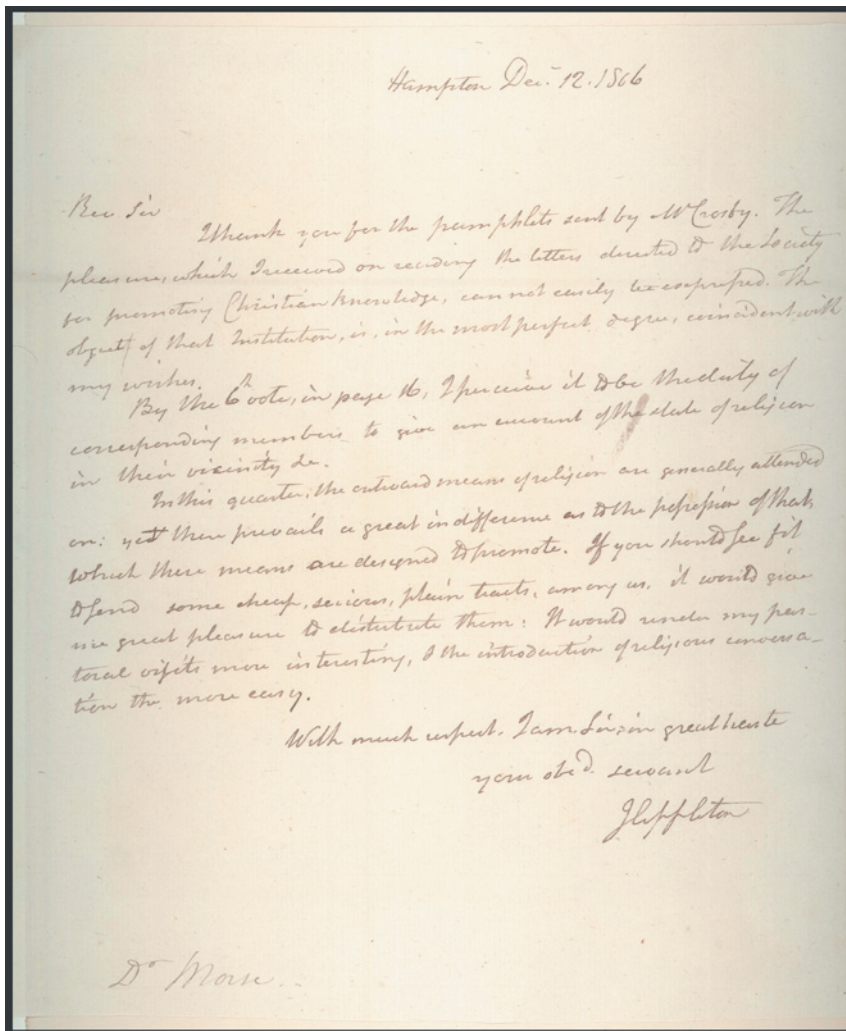 Hampton Dec. 12. 1806
Rev Sir
I thank you for the pamphlets sent by Mr Crosby. The
pleasure, which I received on reading the letters directed to the Society
for promoting Christian Knowledge, cannot easily be expressed. The
object of that Institution, is, in the most perfect degree, coincident with
my wishes.
By the 6th vote, in page 16, I perceive it to be the duty of
corresponding members to give an account of the state of religion
in their vicinity &c.
In this quarter, the outward means of religion are generally attended
on: yet there prevails a great indifference as to the possession of that,
which these means are designed to promote. If you should see fit
to send some cheap, serious, plain tracts, among us, it would give
me great pleasure to distribute them: It would render my pas-
toral visits more interesting, & the introduction of religious conversa-
tion the more easy.
With much respect. I am Sir, in great haste
your obed. servant
J Appleton
Dr Morse